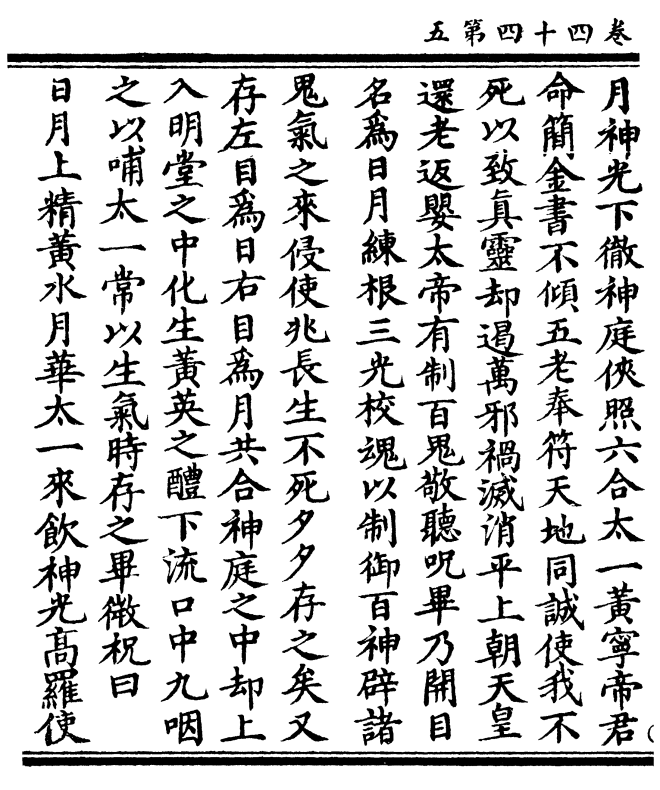 卷四十四第五
月神光下徹神庭俠照六合太一黃寧帝君
命簡金書不傾五老奉符天地同誠使我不
死以致真靈却遏萬邪禍滅消平上朝天皇
還老返嬰太帝有制百鬼敬聽呪畢乃開目
名爲日月練根三光校魂以制御百神辟諸
鬼氣之來侵使兆長生不死夕夕存之矣又
存左目爲日右目爲月共合神庭之中却上
入明堂之中化生黃英之醴下流口中九咽
之以哺太一常以生氣時存之畢微祝曰
日月上精黃水月華太一來飲神光高羅使